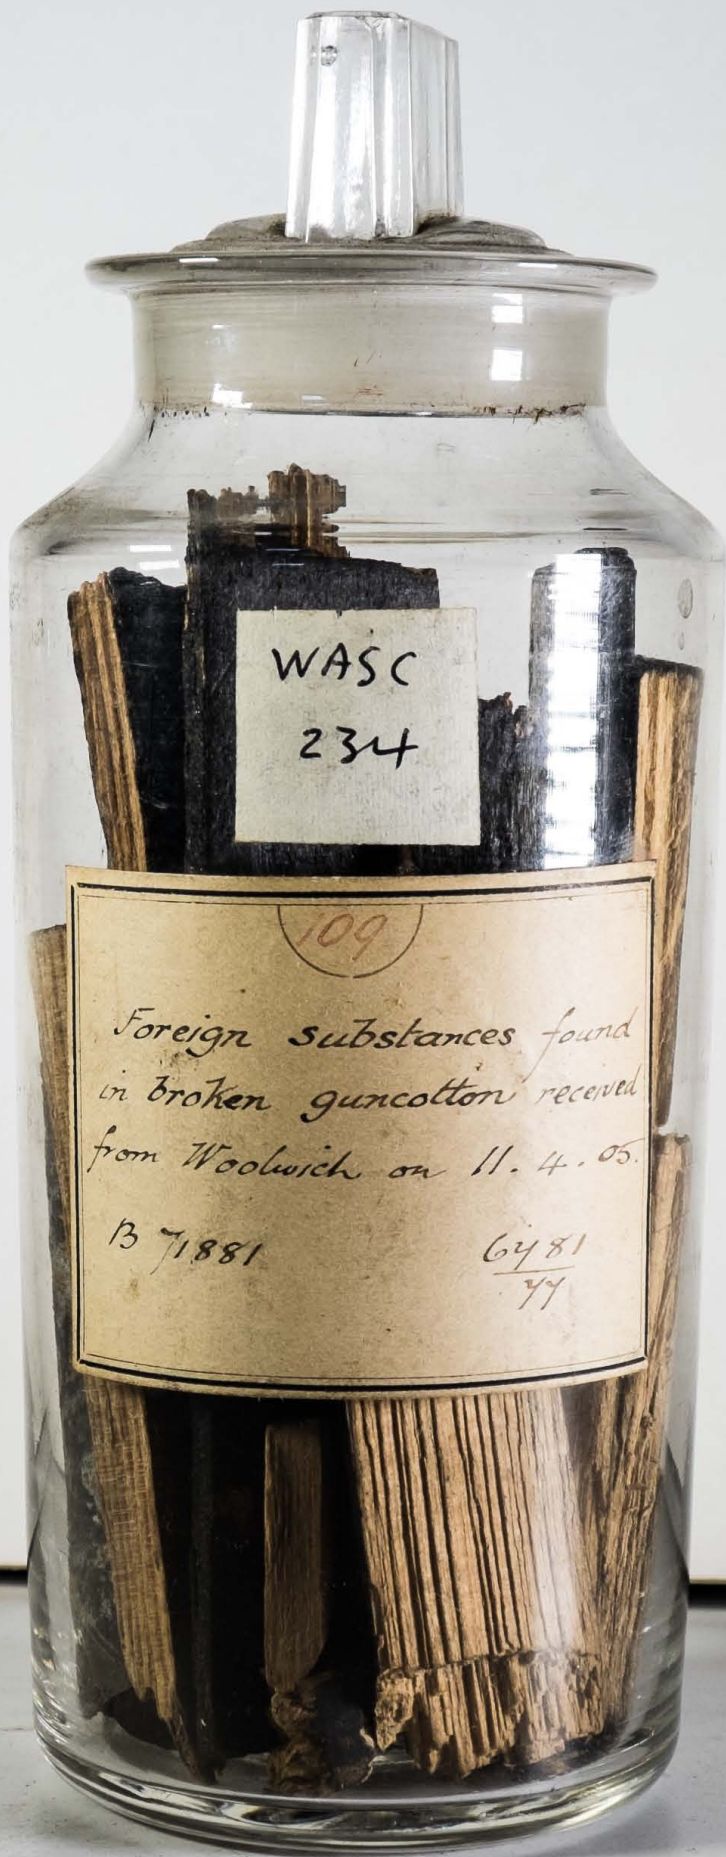 WASC
234
109
Foreign substances found
in broken guncotton received
from Woolwich on 11.4.05.
B 71881
6481
44